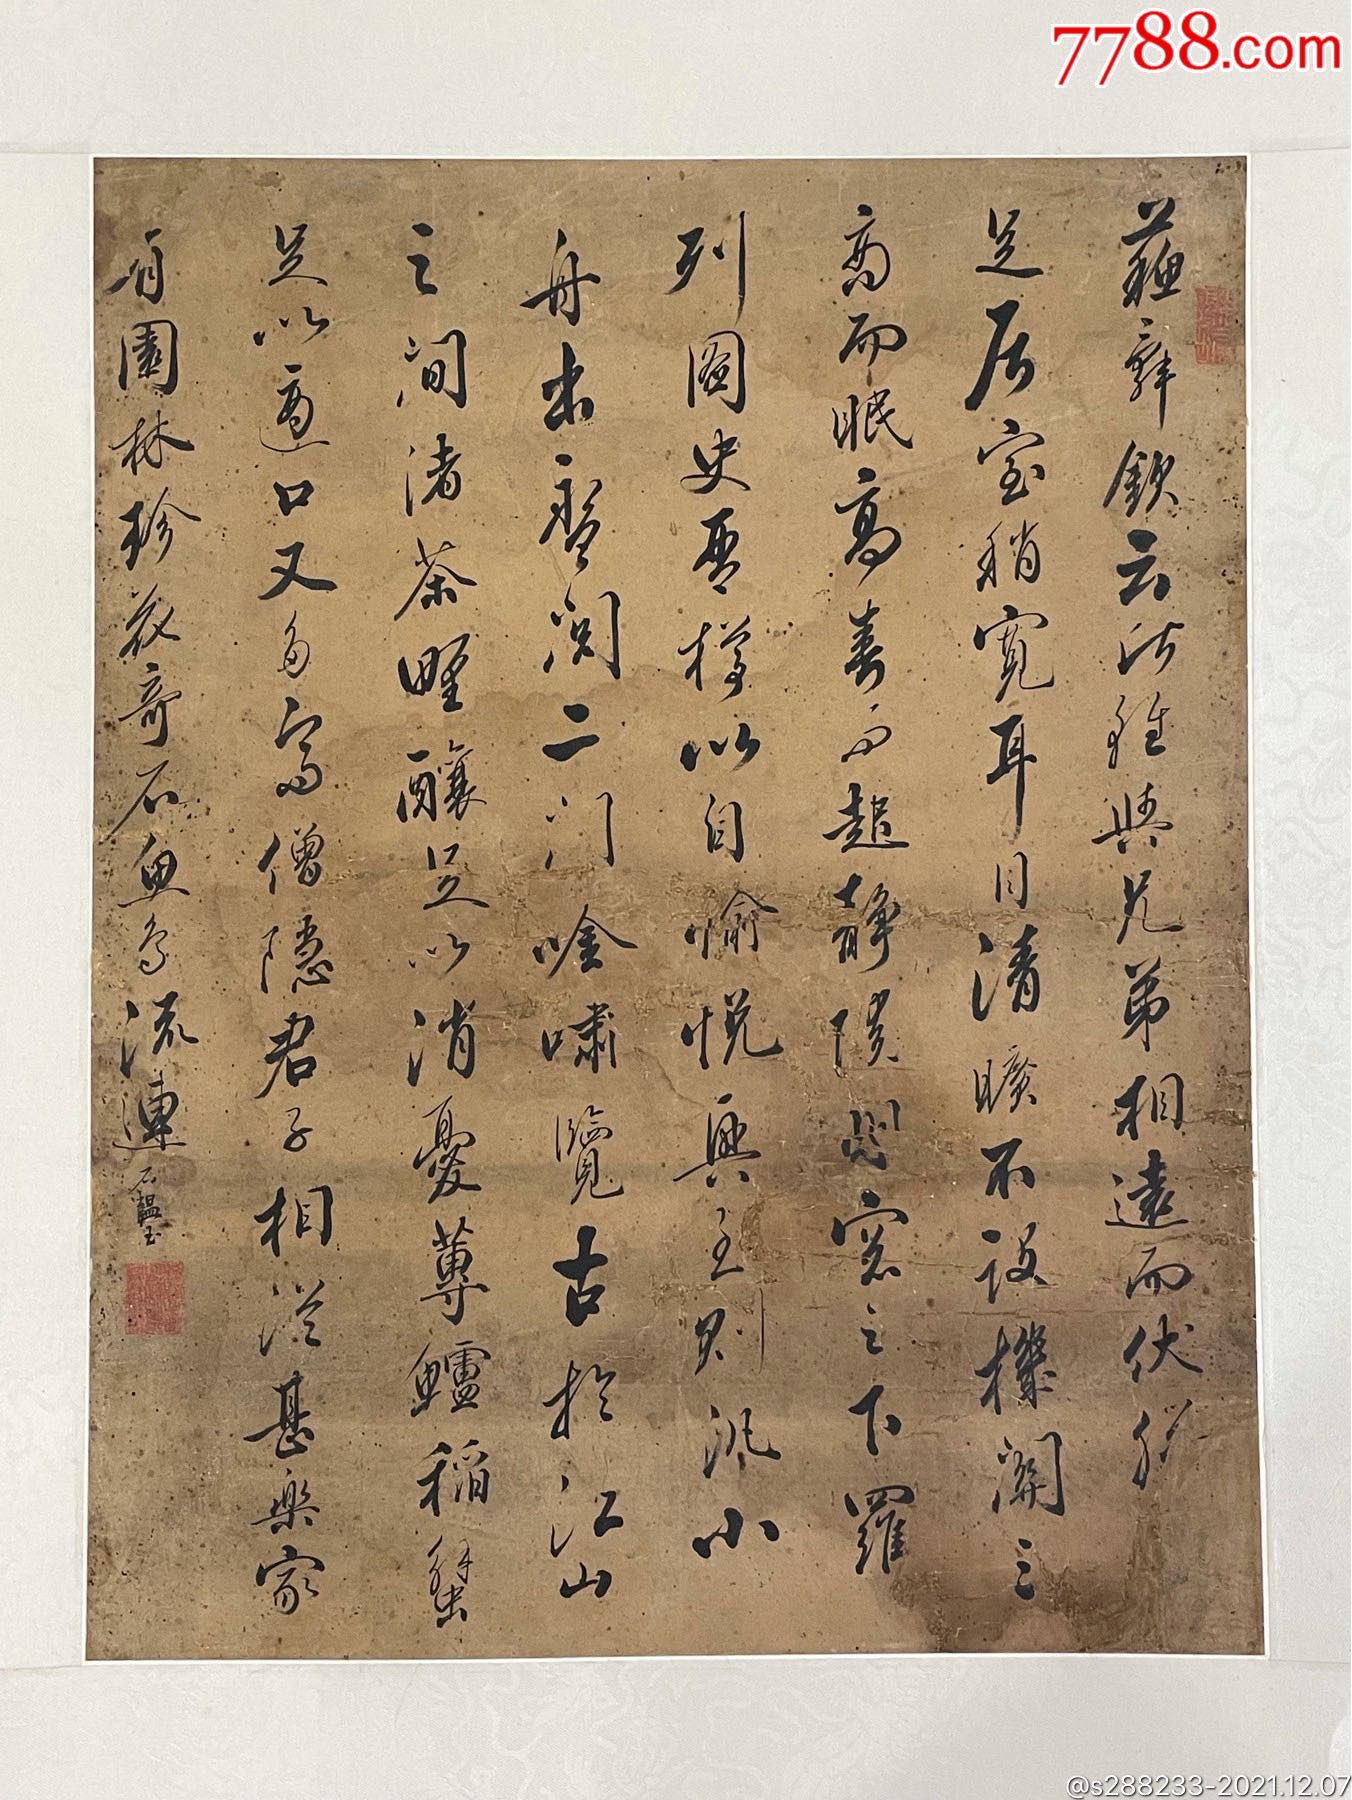 蘇舜欽云此雖與兄弟相遠而伏臘
足居室稍寬耳目清曠不設機關之
高而眠高春而起靜院明窗之下羅
列圖史琴樽以自愉悅興至則汎小
舟出盤閶二門吟嘯覽古於江山
之間渚茶野釀足以消憂蓴鱸稻蟹
足以適口又多高僧隱君子相從甚樂家
有園林珍花奇石魚鳥流連
石韞玉
7788.com
@s288233-2021.12.07